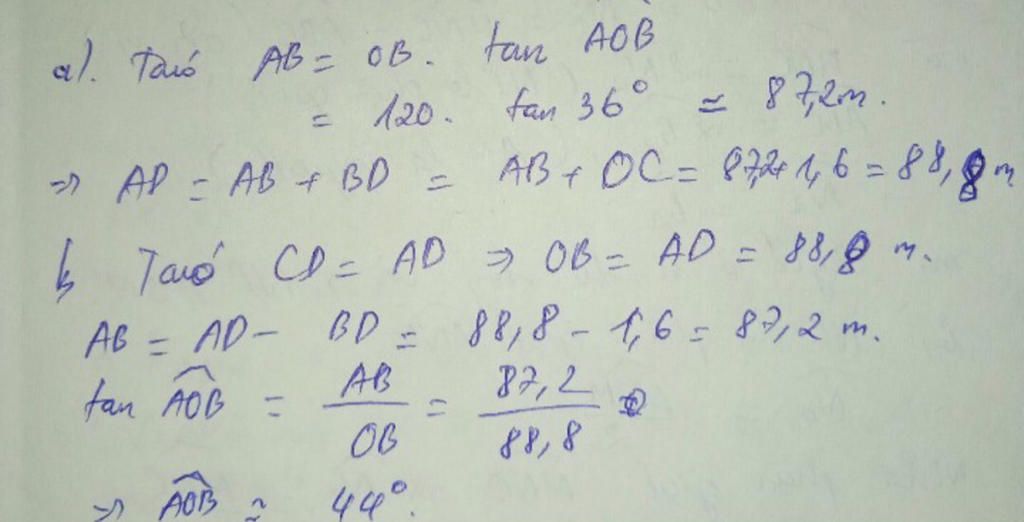 a). Ta có AB = OB. tan AOB
= 120. tan 36° ≃ 87,2m.
=> AD = AB + BD = AB + OC = 87,2+1,6 = 88,8 m
b, Ta có CD = AD => OB = AD = 88,8 m.
AB = AD - BD = 88,8 - 1,6 = 87,2 m.
tan AOB = AB/OB = 87,2/88,8
=> AOB ≃ 44°.